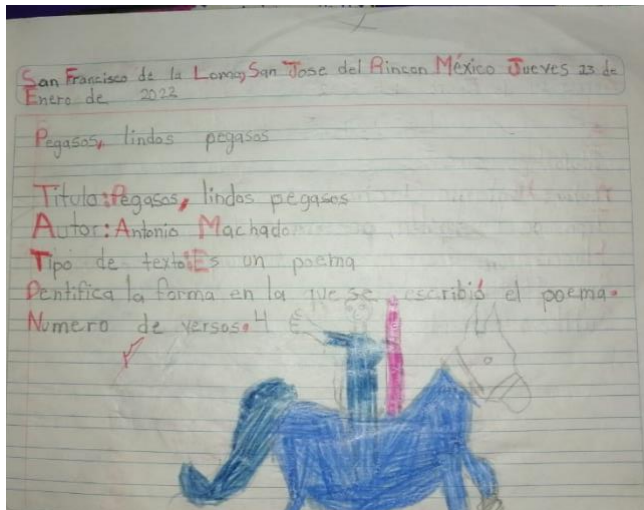 San Francisco de la Loma, San Jose del Rincon México Jueves 23 de
Enero de 2022
Pegasos, lindos pegasos
Titulo: Pegasos, lindos pegasos
Autor: Antonio Machado
Tipo de texto: Es un poema
Identifica la forma en la que se escribió el poema.
Numero de versos. 4